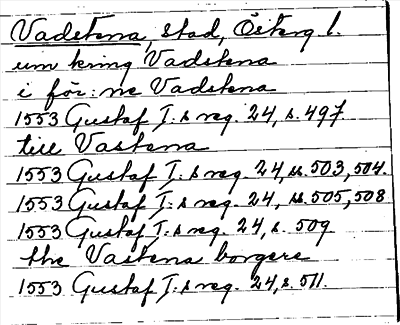 Vadstena, stad, Österg l.
um kring Vadstena
i för: ne Vadstena
1553 Gustaf I:s reg. 24, s. 497
till Vastena
1553 Gustaf I:s reg. 24, ss. 503, 504.
1553 Gustaf I:s reg. 24, ss. 505, 508
1553 Gustaf I:s reg. 24, s. 509
the Vastena borgere
1553 Gustaf I:s reg. 24, s. 511.